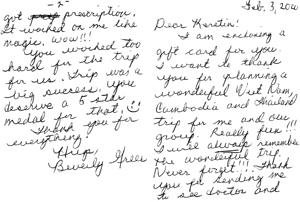 Feb. 3, 200
Dear Kerstin!
I am enclosing a
gift card for you.
I want to thank
you for planning a
wonderful Viet Nam,
Cumbodia and Thailand
trip for me and our
group. Really fun!!!
I will always remember
the wonderful trip.
Never forget!!! Thank
you for sending me
to see doctor and
-2-
got prescription.
It worked on me like
magic, wow!!!
You worked too
hard for the trip
for us. Trip was a
big success. you
deserve a 5 star
medal for that.
Thank you for
everything.
Beverly